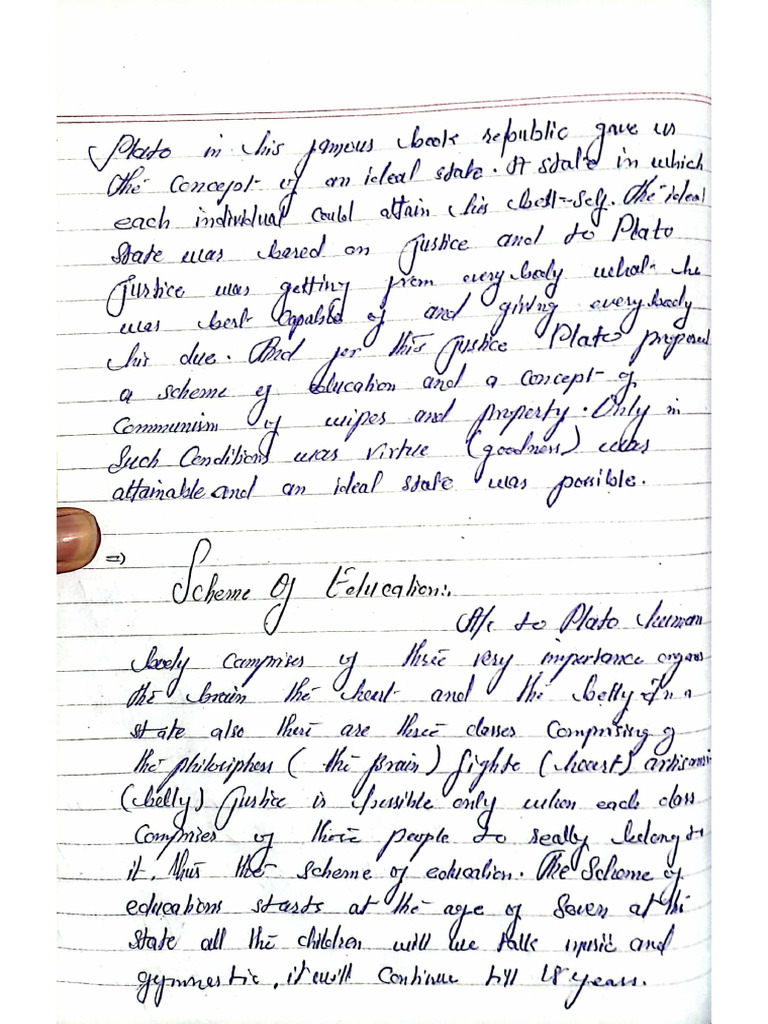 Plato in his famous book republic gave us
the concept of an ideal state. A state in which
each individual could attain his best-self. The ideal
state was based on justice and to Plato
Justice was getting from everybody what he
was best capable of and giving everybody
his due. And for this justice Plato proposed
a scheme of education and a concept of
Communism of wipes and property. Only in
Such Conditions was virtue (goodness) was
attainable and an ideal state was possible.
=> Scheme Of Education:.
A/c to Plato human
body comprises of three very importance organs
the brain the heart and the belly In a
state also there are three classes Comprising of
the philociphers (the Brain) fighte (heart) artisans
(belly) Justice is possible only when each class
Comprises of those people to really belong to
it. thus the scheme of education. The Scheme of
educations starts at the age of Seven at the
state all the children will be talk music and
gymnestic, it will Continue till 18 years.